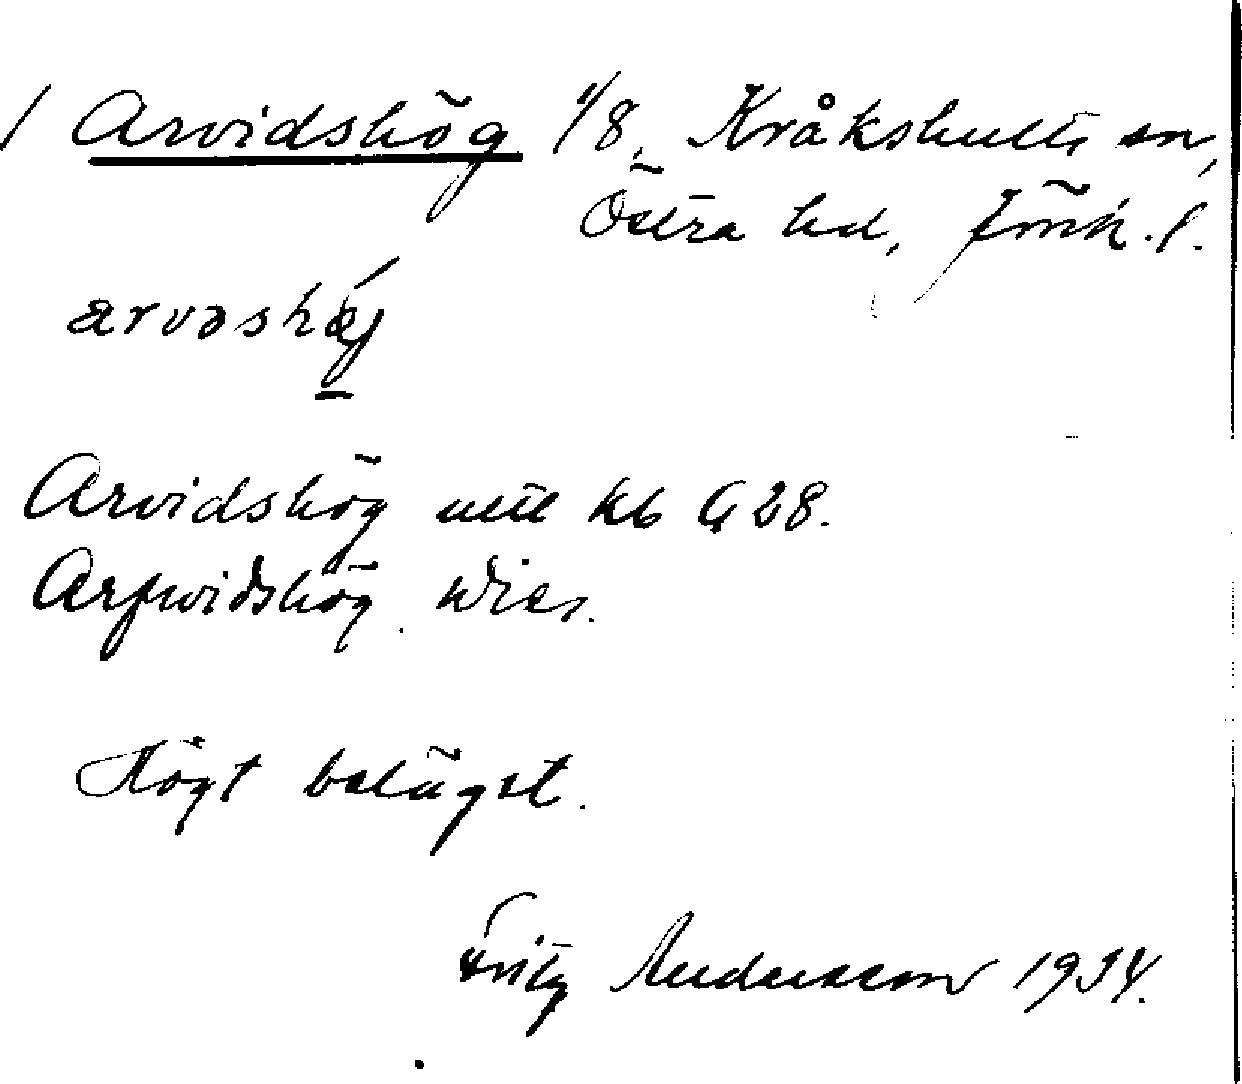 / Arvidshög 1/8, Kråkshults sn,
Östra hd, Jönk. l.
arvəshǿj
Arvidshög utt kb G 28.
Arfwidshög Wies.
Högt beläget.
Fritz Andersson 1934.